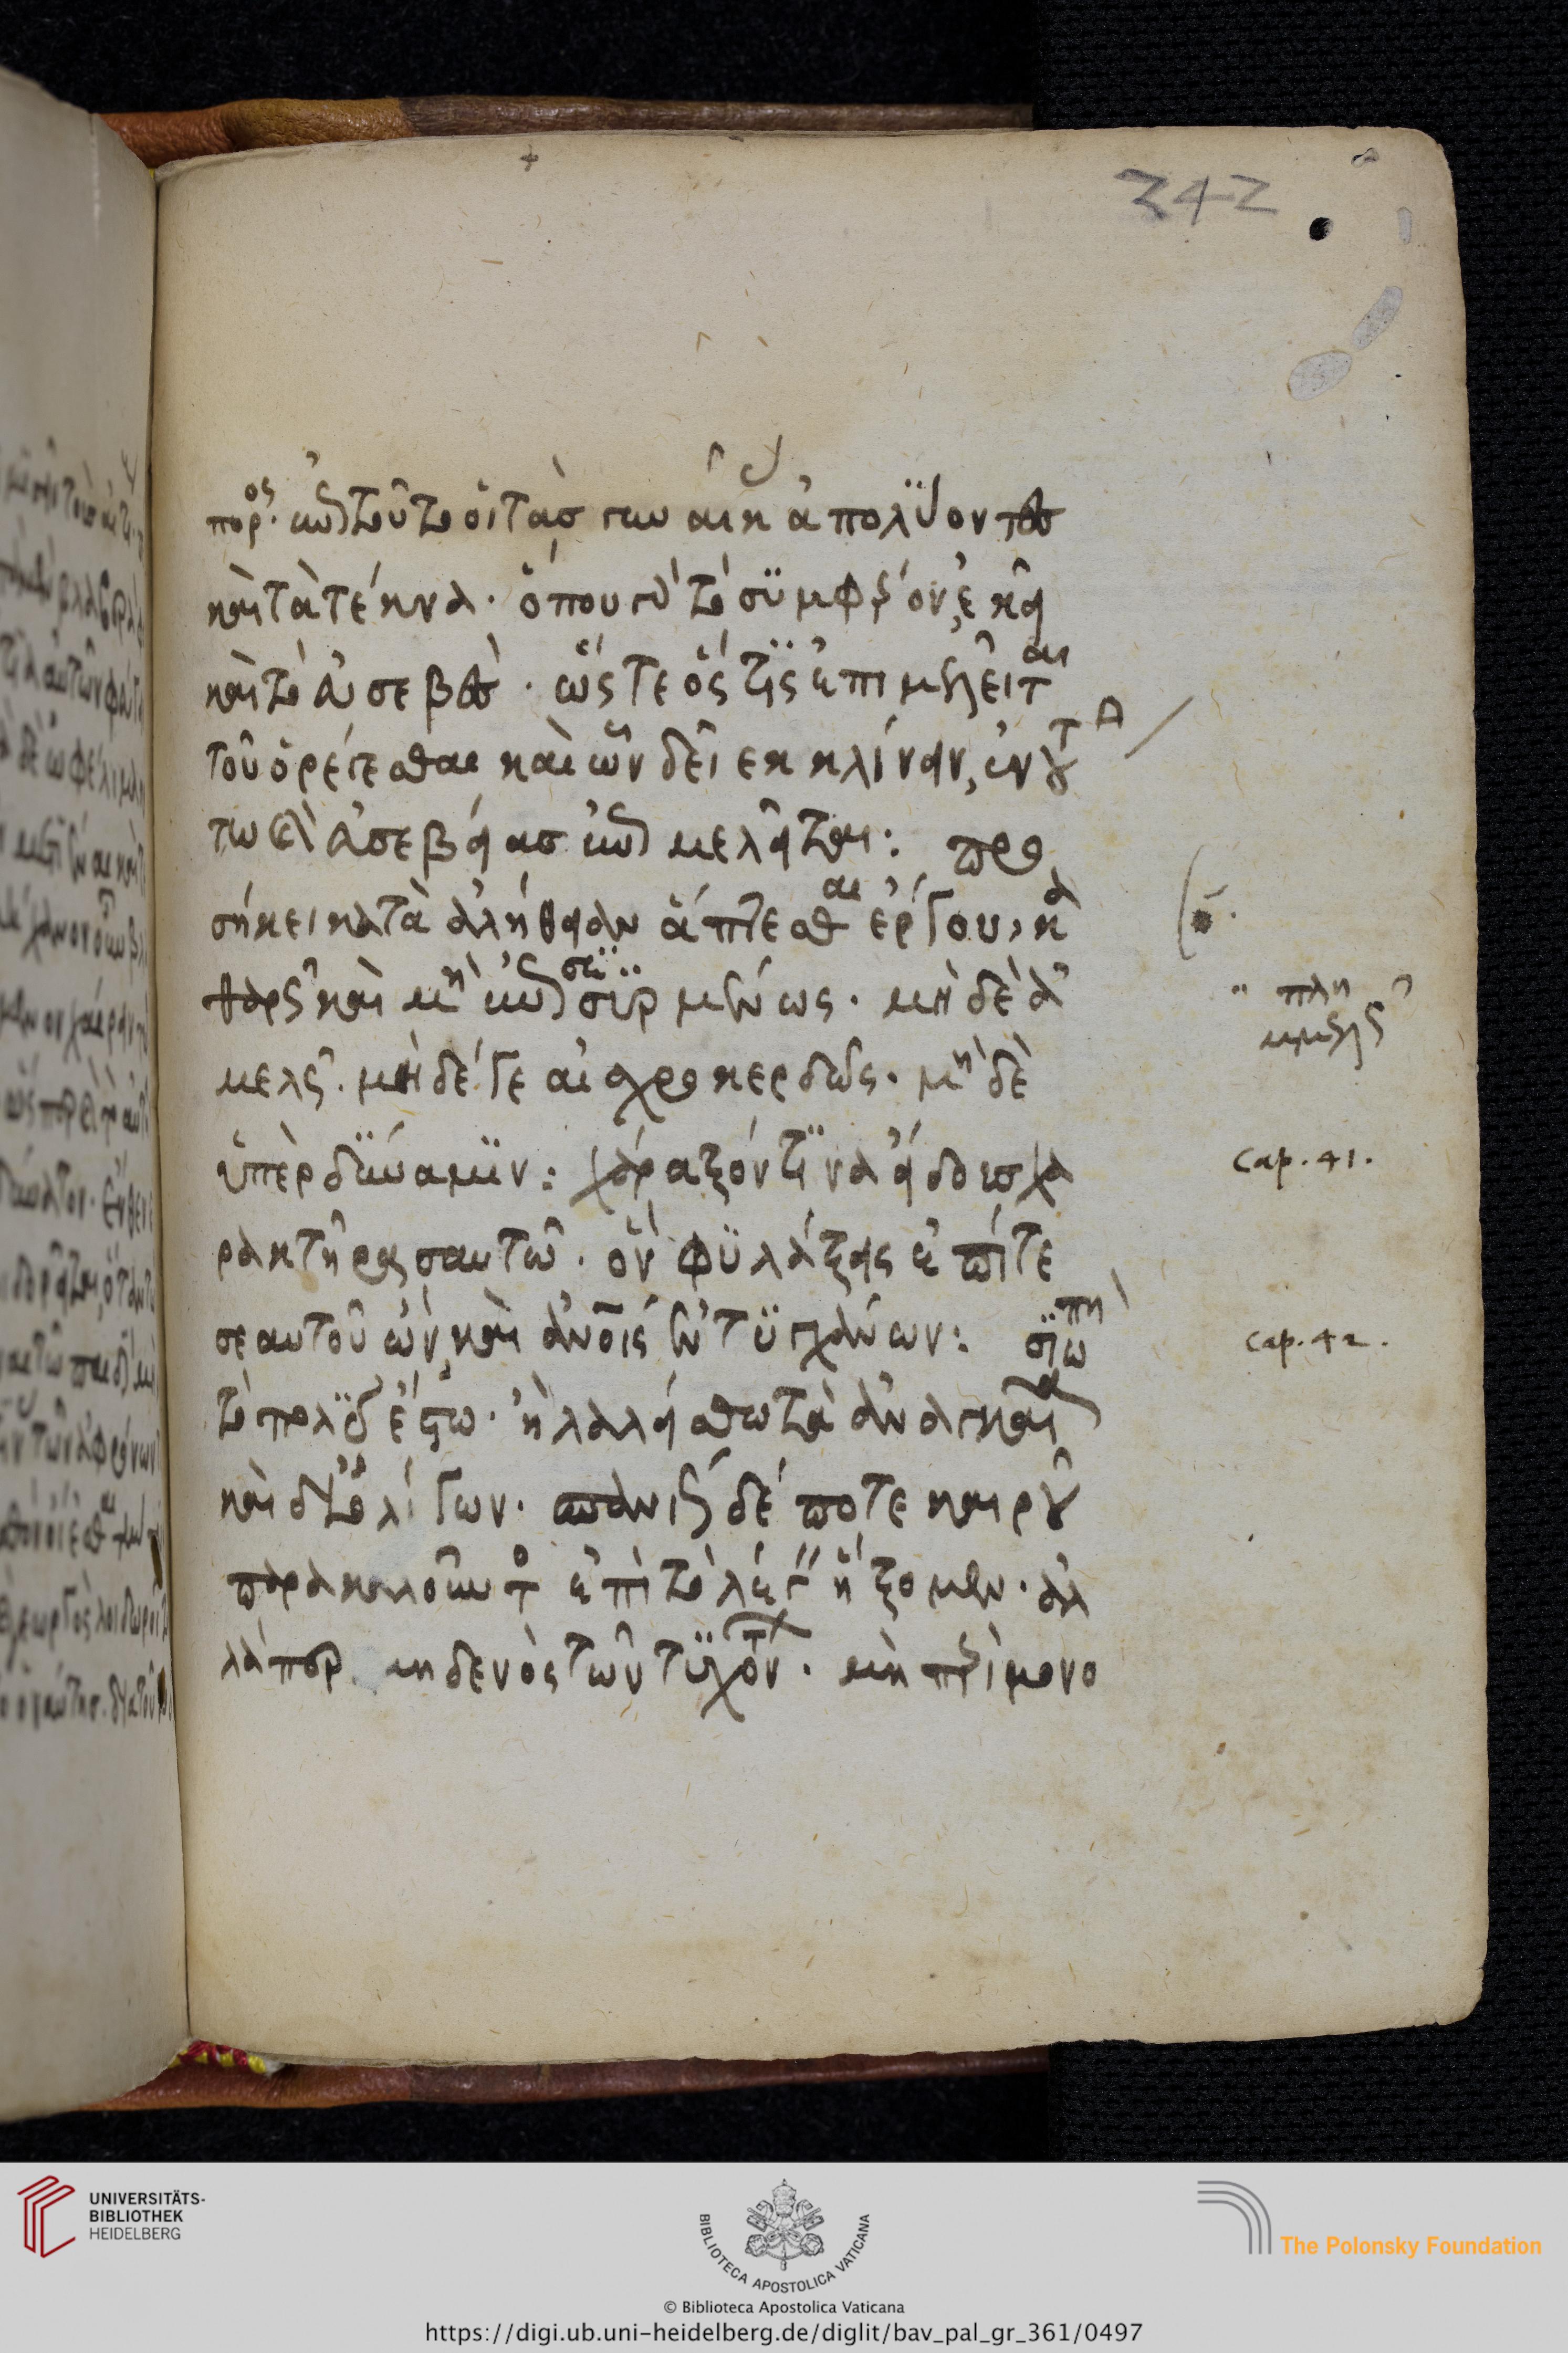 342
πορος· καὶ διὰ τοῦτο οἱ τὰς γυναῖκας ἀπολύοντες
καὶ τὰ τέκνα. ὅπου γὰρ τὸ συμφέρον, ἐκεῖ
καὶ τὸ εὐσεβές. ὥστε ὅστις ἐπιμελεῖται
τοῦ ὀρέγεσθαι καὶ ὧν δεῖ ἐκκλίνειν, ἐν
εὐσεβείας ἐπιμελεῖται: προ
σήκει κατὰ ἀλήθειαν ἅπτεσθαι ἔργου, κα
θαρῶς καὶ μὴ ἐπισεσυρμένως. μηδὲ ἀ
μελῶς. μηδέ γε αἰσχροκερδῶς. μηδὲ
ὑπὲρ δύναμιν: χάραξόν τινα ἤδη χα
ρακτῆρα σαυτῷ. ὃν φυλάξεις ἐπί τε
σεαυτοῦ ὢν, καὶ ἀνοις ἐντυγχάνων: σιωπὴ
τὸ πολὺ ἔστω. ἢ λαλείσθω τὰ ἀναγκαῖα
καὶ δι' ὀλίγων. σπανίως δέ ποτε καιροῦ
παρακαλοῦντος ἐπὶ τὸ λέγειν ἥξομεν. ἀλ
λὰ περὶ μηδενὸς τῶν τυχόντων. μὴ περὶ μονο
Cap. 41.
Cap. 42.
UNIVERSITÄTS-
BIBLIOTHEK
HEIDELBERG
BIBLIOTECA APOSTOLICA VATICANA
The Polonsky Foundation
© Biblioteca Apostolica Vaticana
https://digi.ub.uni-heidelberg.de/diglit/bav_pal_gr_361/0497